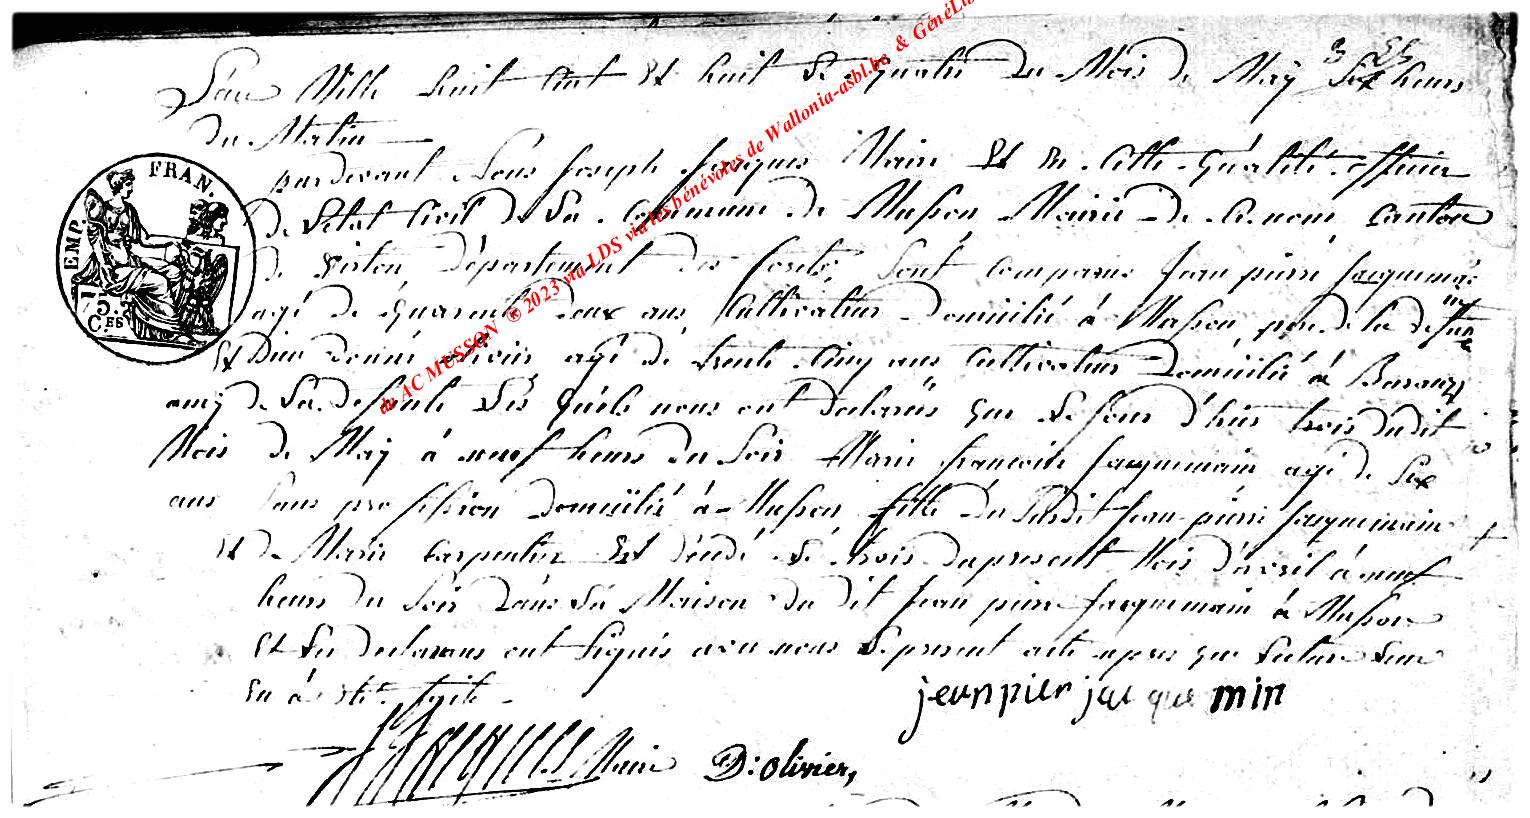 L'an Mille huit Cent Et huit Le quatre du Mois de May Six heures
du Matin
pardevant Nous Joseph Jacques Maire Et En Cette Qualité officier
de L'etat Civil de La Commune de Musson Mairie de Ce nom Canton
de Virton Département des forêts, Sont Comparus Jean pierre Jacquemain
agé de Quarente deux ans Cultivateur Domicilié à Musson, pere de la defunte
Et Dieu donné olivier agé de trente Cinq ans Cultivateur Domicilié à Baranzy
amy de La defunte Les Quels nous ont declarés que Le Jour d'hier trois dudit
Mois de May à neuf heures du Soir Marie francoise Jacquemain agé de Six
ans Sans profession Domicilié à Musson fille du Susdit Jean pierre Jacquemain
Et de Marie Carpentier Est décédé Le trois du present Mois d'avril à neuf
heures du Soir Dans La Maison du dit Jean pierre Jacquemain à Musson
Et Les declarans ont Signés avec nous Le present acte apres que Lecture Leur
En à Eté faite
jeanpier jacquemin
Maire D: olivier,
EMP. FRAN.
C.ES
du AC MUSSON ® 2023 via LDS via les bénévoles de Wallonia-asbl.be & GénéLu